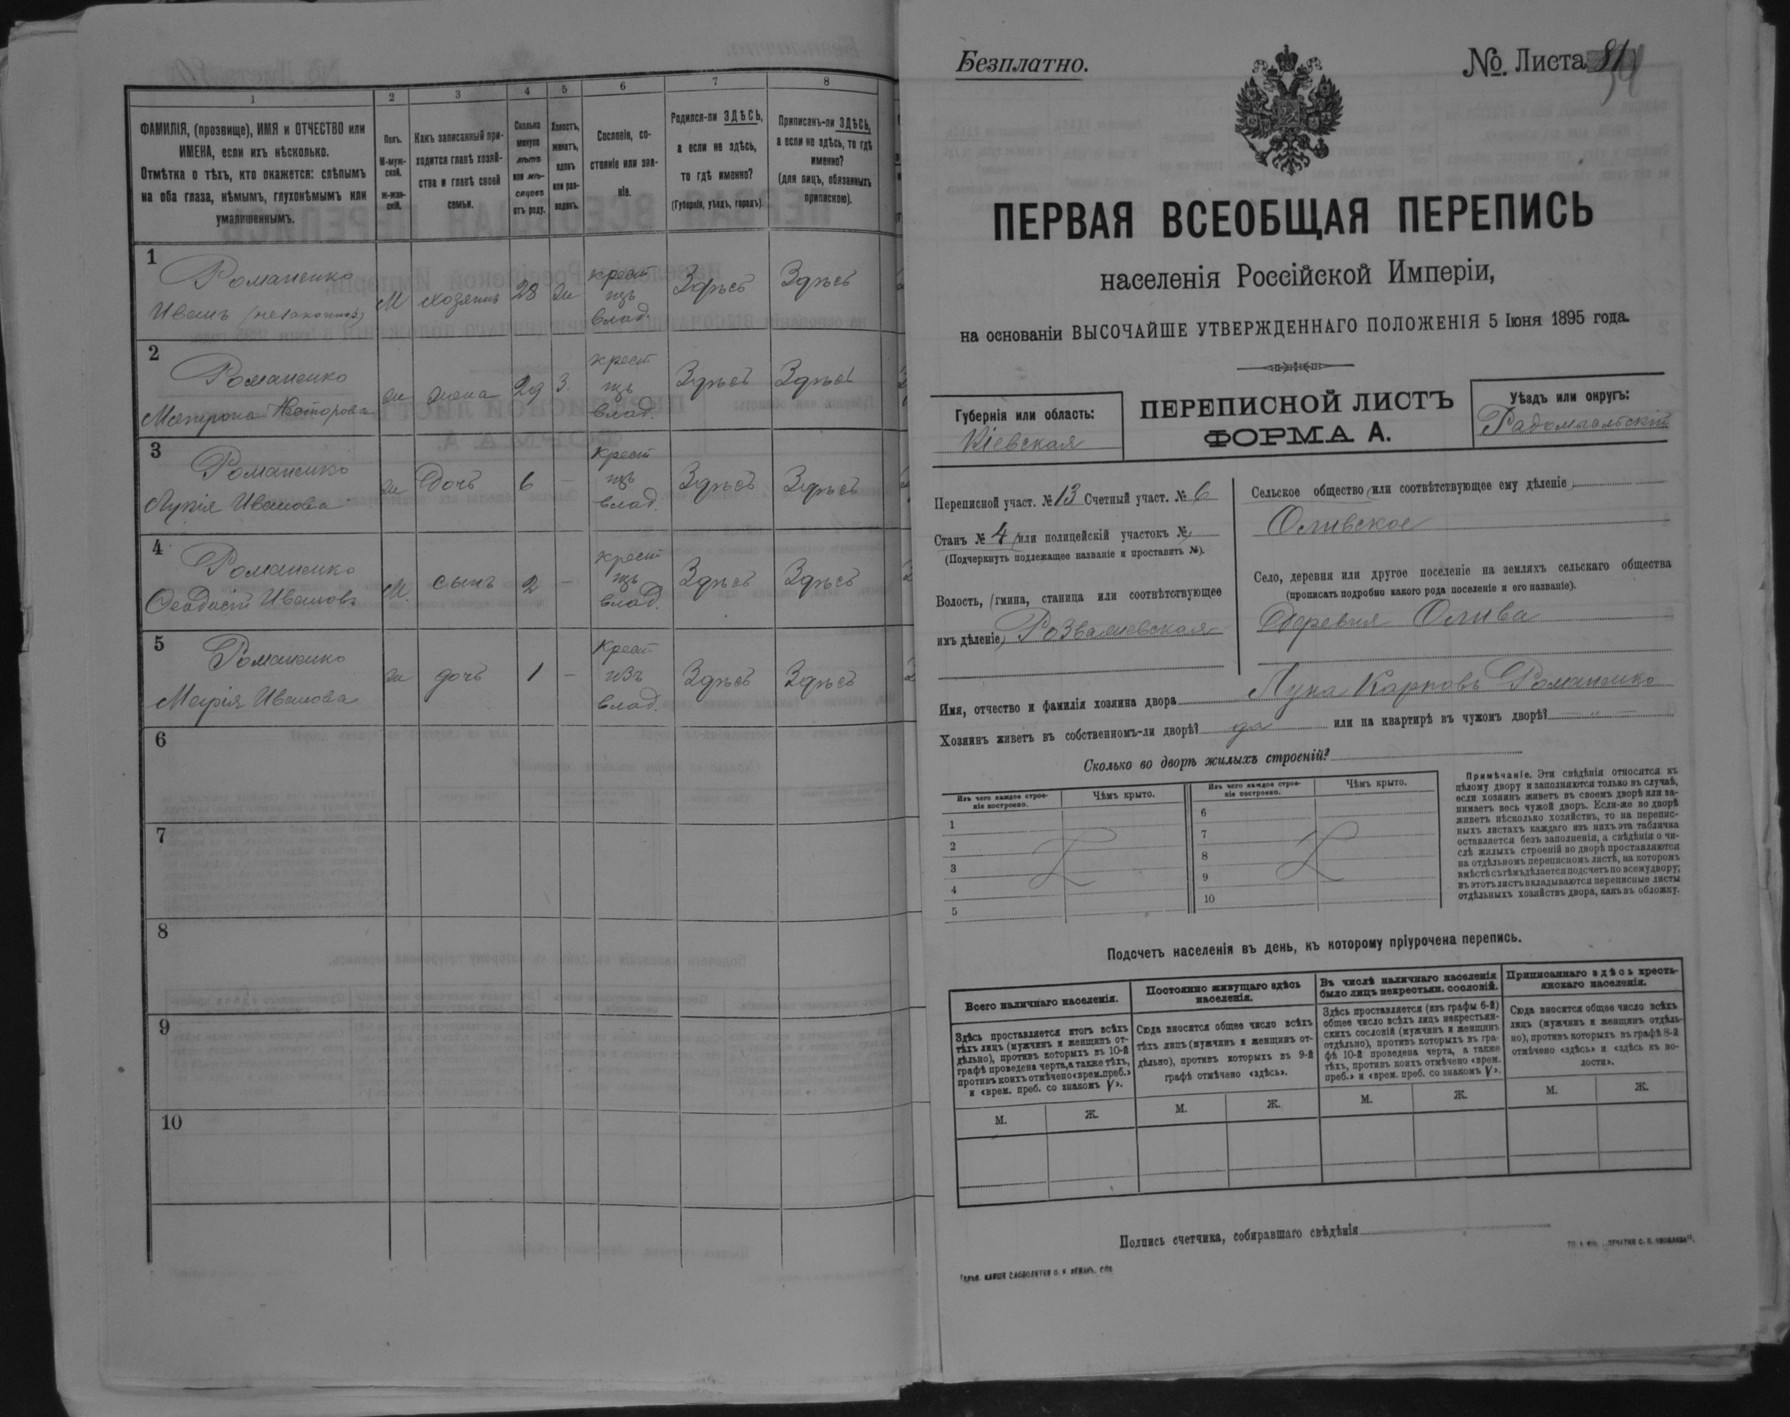 1
2
3
4
5
6
7
8
ФАМИЛІЯ, (прозвище), ИМЯ и ОТЧЕСТВО или
ИМЕНА, если ихъ нѣсколько.
Отмѣтка о тѣхъ, кто окажется: слѣпымъ
на оба глаза, нѣмымъ, глухонѣмымъ или
умалишеннымъ.
Полъ.
М-муж-
ской.
ж-жен-
скій.
Какъ записанный при-
ходится главѣ хозяй-
ства и главѣ своей
семьи.
Сколько
минуло
лѣтъ
или мѣ-
сяцевъ
отъ роду.
Холостъ,
женатъ,
вдовъ
или раз-
веденъ.
Сословіе, со-
стояніе или зва-
ніе.
Родился-ли ЗДѢСЬ,
а если не здѣсь,
то гдѣ именно?
(Губернія, уѣздъ, городъ).
Приписанъ-ли ЗДѢСЬ,
а если не здѣсь, то гдѣ
именно?
(для лицъ, обязанныхъ
припискою).
1
Романенко
Иванъ (незаконный)
М
хозяинъ
28
ж
крест
изъ
влад.
Здѣсь
Здѣсь
2
Романенко
Матрона Несторова
ж
жена
29
З
крест
изъ
влад.
Здѣсь
Здѣсь
3
Романенко
Лукія Иванова
ж
дочь
6
–
крест
изъ
влад.
Здѣсь
Здѣсь
4
Романенко
Ѳеодосій Ивановъ
М.
сынъ
2
–
крест
изъ
влад.
Здѣсь
Здѣсь
5
Романенко
Марія Иванова
ж
дочь
1
–
крест
изъ
влад.
Здѣсь
Здѣсь
6
7
8
9
10
Безплатно.
№. Листа 81
ПЕРВАЯ ВСЕОБЩАЯ ПЕРЕПИСЬ
населенія Россійской Имперіи,
на основаніи ВЫСОЧАЙШЕ УТВЕРЖДЕННАГО ПОЛОЖЕНІЯ 5 Іюня 1895 года.
Губернія или область:
Кіевская
ПЕРЕПИСНОЙ ЛИСТЪ
ФОРМА А.
Уѣздъ или округъ:
Радомысльскій
Переписной участ. № 13 Счетный участ. № 6
Станъ № 4 или полицейскій участокъ №
(Подчеркнуть подлежащее названіе и проставить №).
Волость, (гмина, станица или соотвѣтствующее
имъ дѣленіе) Розважевская
Сельское общество (или соотвѣтствующее ему дѣленіе)
Оливское
Село, деревня или другое поселеніе на земляхъ сельскаго общества
(прописать подробно какого рода поселеніе и его названіе).
Деревня Олива
Имя, отчество и фамилія хозяина двора Лука Карповъ Романенко
Хозяинъ живетъ въ собственномъ-ли дворѣ? да или на квартирѣ въ чужомъ дворѣ? — „ —
Сколько во дворѣ жилыхъ строеній?
Изъ чего каждое строе-
ніе построено.
Чѣмъ крыто.
Изъ чего каждое строе-
ніе построено.
Чѣмъ крыто.
1
2
3
4
5
6
7
8
9
10
Примѣчаніе. Эти свѣдѣнія относятся къ
цѣлому двору и заполняются только въ случаѣ,
если хозяинъ живетъ въ своемъ дворѣ или за-
нимаетъ весь чужой дворъ. Если-же во дворѣ
живетъ нѣсколько хозяйствъ, то на перепис-
ныхъ листахъ каждаго изъ нихъ эта табличка
оставляется безъ заполненія, а свѣдѣнія о чи-
слѣ жилыхъ строеній во дворѣ проставляются
на отдѣльномъ переписномъ листѣ, на которомъ
вмѣстѣ съ тѣмъ дѣлается подсчетъ по всему двору;
въ этотъ листъ вкладываются переписные листы
отдѣльныхъ хозяйствъ двора, какъ въ обложку.
Подсчетъ населенія въ день, къ которому пріурочена перепись.
Всего наличнаго населенія.
Постоянно живущаго здѣсь
населенія.
Въ числѣ наличнаго населенія
было лицъ некрестьян. сословій.
Приписаннаго здѣсь кресть-
янскаго населенія.
Здѣсь проставляется итогъ всѣхъ
тѣхъ лицъ (мужчинъ и женщинъ от-
дѣльно), противъ которыхъ въ 10-й
графѣ проведена черта, а также тѣхъ,
противъ коихъ отмѣчено «врем. преб.»
и «врем. преб. со знакомъ V».
Сюда вносится общее число всѣхъ
тѣхъ лицъ (мужчинъ и женщинъ от-
дѣльно), противъ которыхъ въ 9-й
графѣ отмѣчено «здѣсь».
Здѣсь проставляется (изъ графы 6-й)
общее число всѣхъ лицъ некрестьян-
скихъ сословій (мужчинъ и женщинъ
отдѣльно), противъ которыхъ въ гра-
фѣ 10-й проведена черта, а также
тѣхъ, противъ коихъ отмѣчено «врем.
преб.» и «врем. преб. со знакомъ V».
Сюда вносится общее число всѣхъ
лицъ (мужчинъ и женщинъ отдѣль-
но), противъ которыхъ въ графѣ 8-й
отмѣчено «здѣсь» и «здѣсь въ во-
лости».
М.
Ж.
М.
Ж.
М.
Ж.
М.
Ж.
Подпись счетчика, собиравшаго свѣдѣнія